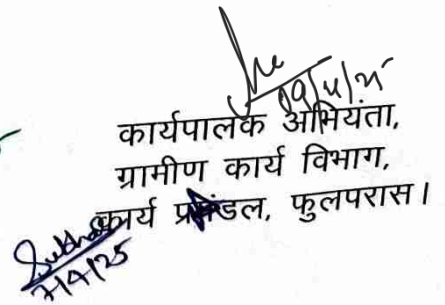 09/4/25
कार्यपालक अभियंता,
ग्रामीण कार्य विभाग,
कार्य प्रमंडल, फुलपरास।
7/4/25